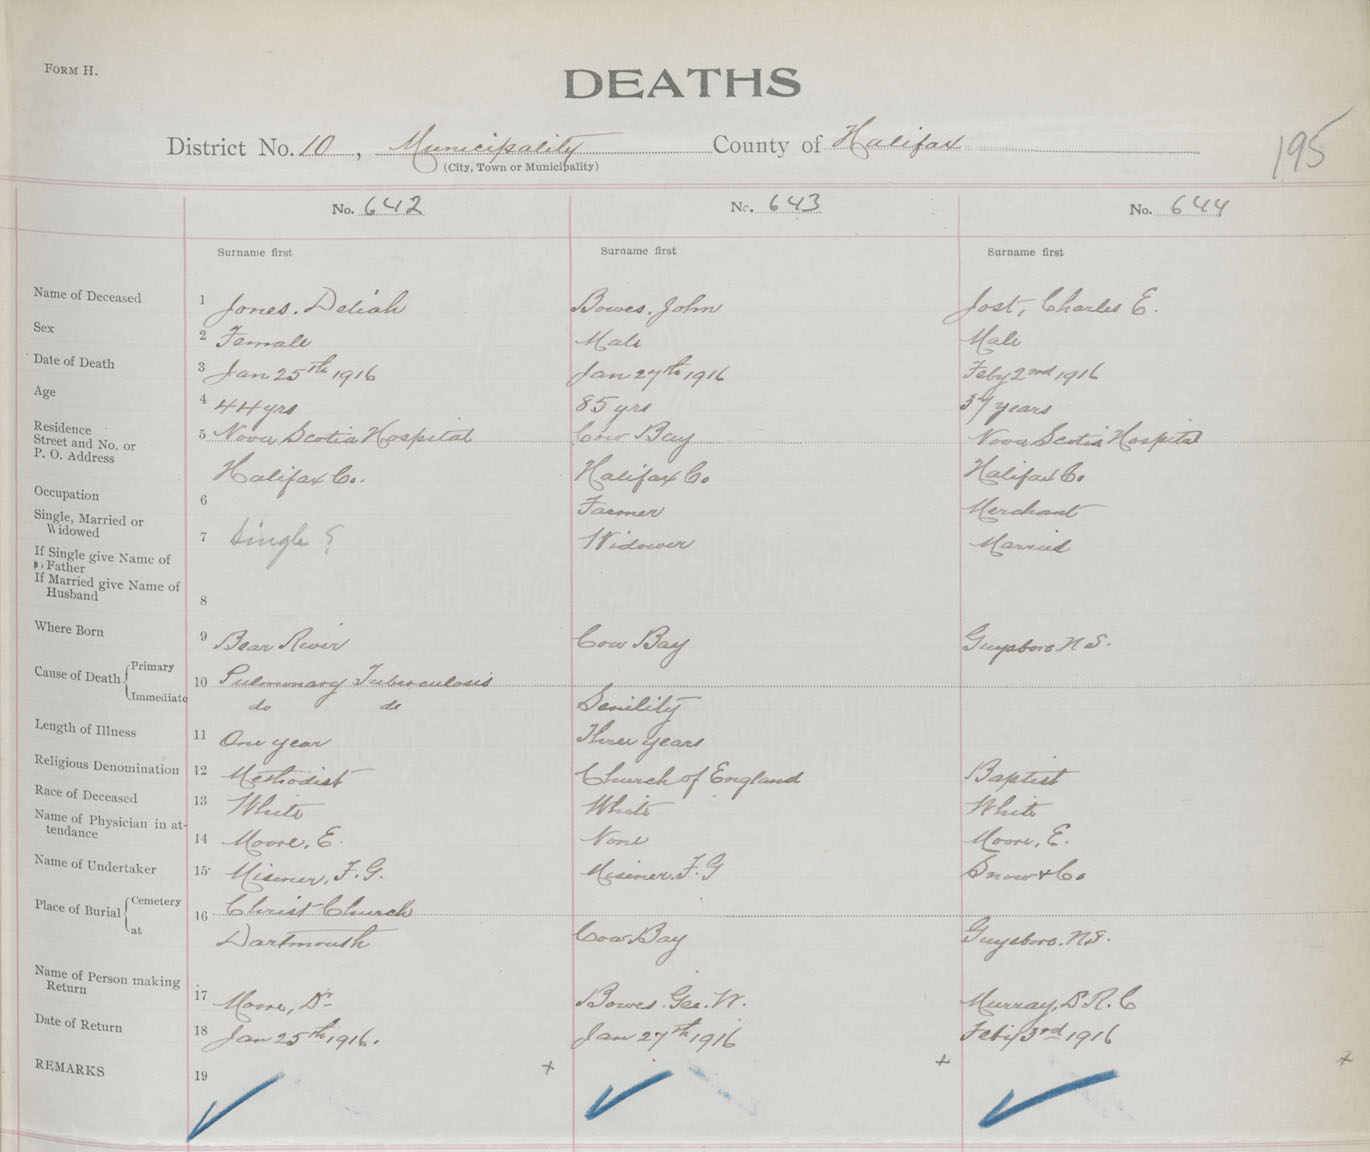 FORM H.
DEATHS
District No. 10, Municipality County of Halifax
(City, Town or Municipality)
195
No. 642 No. 643 No. 644
Surname first Surname first Surname first
Name of Deceased 1 Jones. Deliah Bowes. John Jost, Charles E.
Sex 2 Female Male Male
Date of Death 3 Jan 25th 1916 Jan 27th 1916 Feby 2nd 1916
Age 4 44 yrs 85 yrs 37 years
Residence Street and No. or P. O. Address 5 Nova Scotia Hospital Cow Bay Nova Scotia Hospital
Halifax Co. Halifax Co. Halifax Co.
Occupation 6 Farmer Merchant
Single, Married or Widowed 7 Single ? Widower Married
If Single give Name of Father
If Married give Name of Husband 8
Where Born 9 Bear River Cow Bay Guysboro N S.
Cause of Death Primary 10 Pulmonary Tuberculosis
Immediate do do Senility
Length of Illness 11 One year Three years
Religious Denomination 12 Methodist Church of England Baptist
Race of Deceased 13 White White White
Name of Physician in attendance 14 Moore, E. None Moore, E.
Name of Undertaker 15 Misener, F. G. Misener, F. G Snow & Co.
Place of Burial Cemetery 16 Christ Church
at Dartmouth Cow Bay Guysboro. N S.
Name of Person making Return 17 Moore, Dr Bowes. Geo. W. Murray, D R. C
Date of Return 18 Jan 25th 1916. Jan 27th 1916 Feby 3rd 1916
REMARKS 19 + + +